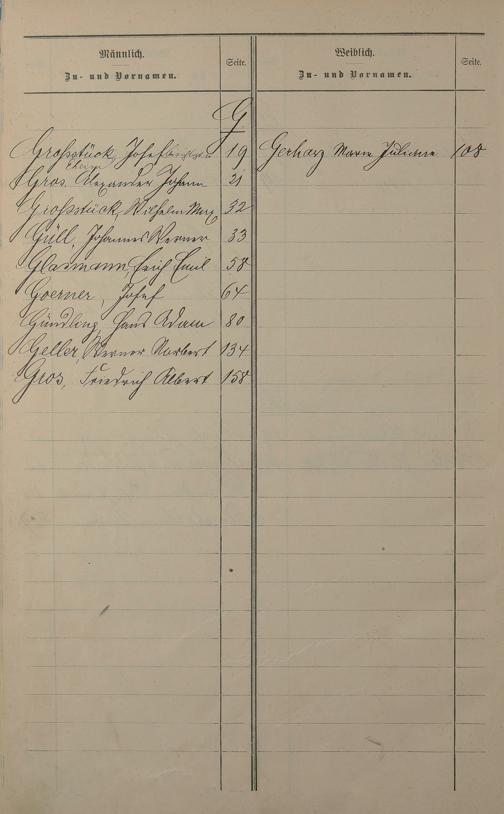 Männlich.
Zu- und Vornamen.
Seite.
Weiblich.
Zu- und Vornamen.
Seite.
G
Großstück, Josef 19
Gros, Alexander Johann 21
Großstück, Wilhelm Max 32
Güll, Johannes Werner 33
Glasmann, Erich Emil 58
Goerner, Josef 64
Gündling, Hans Adam 80
Geller, Werner Norbert 134
Gros, Friedrich Albert 158
Gerharz Maria Juliana 108